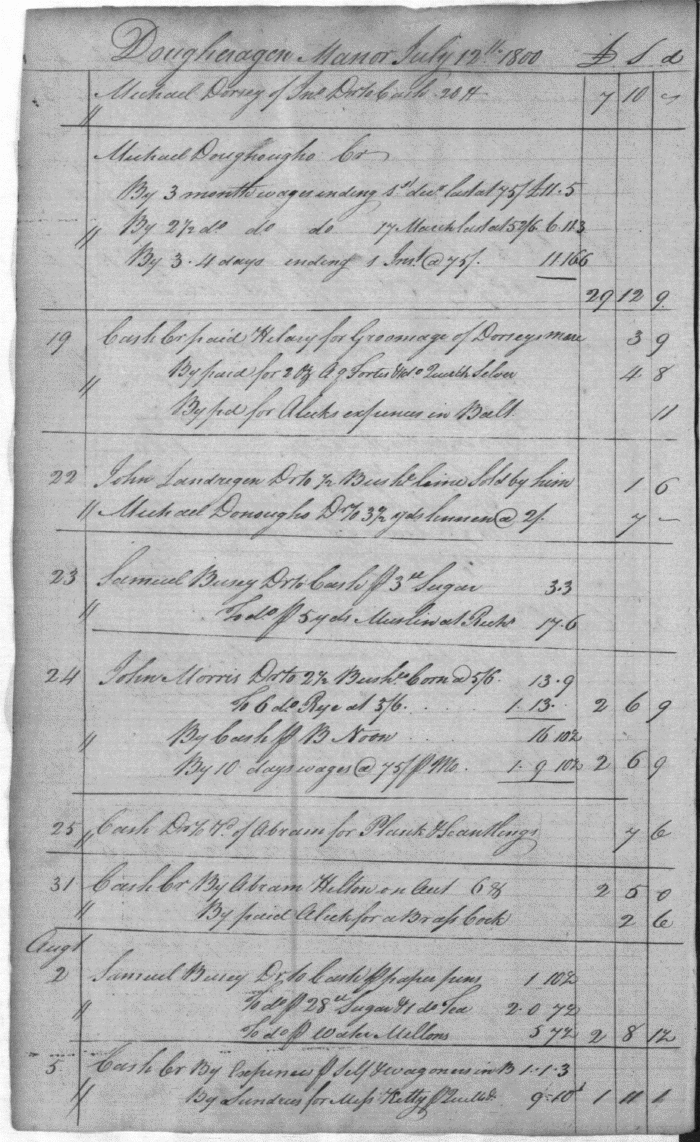 Dougheragen Manor July 12th 1800 £ S d
" Michael Dorsey of Jno Dr to Cash 20 $ 7 10 -
Michael Doughougho Cr
By 3 month wages ending 1st decr last at 75/ £11.5
" By 2½ do do do 17 March last at 52/6 6.11.3
By 3.4 days ending 1 Inst @ 75/. 11 16 6
29 12 9
19 Cash Cr paid Hilary for Groomage of Dorseys mare 3 9
" By paid for 2 oz & do Quick Silver 4 8
By pd for Alicks expences in Balt 11
22 John Landregen Dr to ½ Bushl lime Sold by him 1 6
" Michael Donougho Dr to 3½ yds linnen @ 2/. 7 -
23 Samuel Busey Dr to Cash ⅌ 3 lb Sugar 3.3
" To do ⅌ 5 yds Muslin at 17.6
24 John Morris Dr to 2½ Bushls Corn @ 5/6. 13.9
To 6 do Rye at 5/6. . . . . 1. 13. 2 6 9
" By Cash ⅌ B Noon . . . . 16 10½
By 10 days wages @ 75/ ⅌ Mo. 1. 9 10½ 2 6 9
25 " Cash Dr to of Abram for Plank & Scantlings 7 6
31 Cash Cr By Abram Hilton on Act 6 $ 2 5 0
" By paid Alick for a Brass Cock 2 6
Augt
2 Samuel Busey Dr to Cash ⅌ paper pins 1 10½
" To do ⅌ 28 lb Sugar & 1 do Tea 2. 0 7½
To do ⅌ Water Mellons 5 7½ 2 8 1½
5 Cash Cr By Expences ⅌ Self & wagoners in B 1.1.3
" By Sundries for Miss Kitty ⅌ 9.10 1 11 1